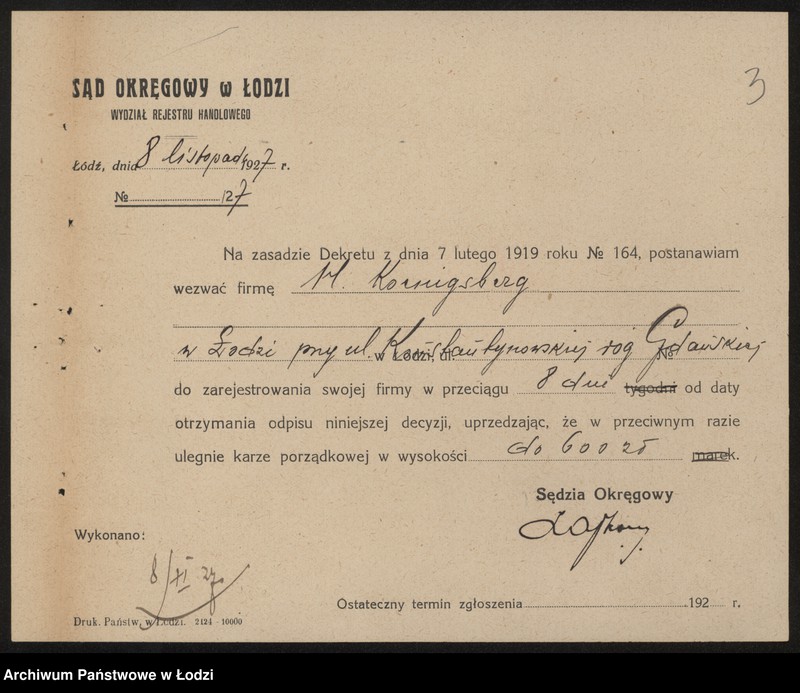 3
SĄD OKRĘGOWY w ŁODZI
WYDZIAŁ REJESTRU HANDLOWEGO
Łódź, dnia 8 listopada 1927 r.
№ /27
Na zasadzie Dekretu z dnia 7 lutego 1919 roku № 164, postanawiam
wezwać firmę M. Koenigsberg
w Łodzi, ul. №
w Łodzi przy ul. Konstantynowskiej róg Gdańskiej
do zarejestrowania swojej firmy w przeciągu 8 dni tygodni od daty
otrzymania odpisu niniejszej decyzji, uprzedzając, że w przeciwnym razie
ulegnie karze porządkowej w wysokości do 600 zł marek.
Sędzia Okręgowy
Wykonano:
8/XI 27
Ostateczny termin zgłoszenia 192 r.
Druk. Państw. w Łodzi. 2124 - 10000
Archiwum Państwowe w Łodzi